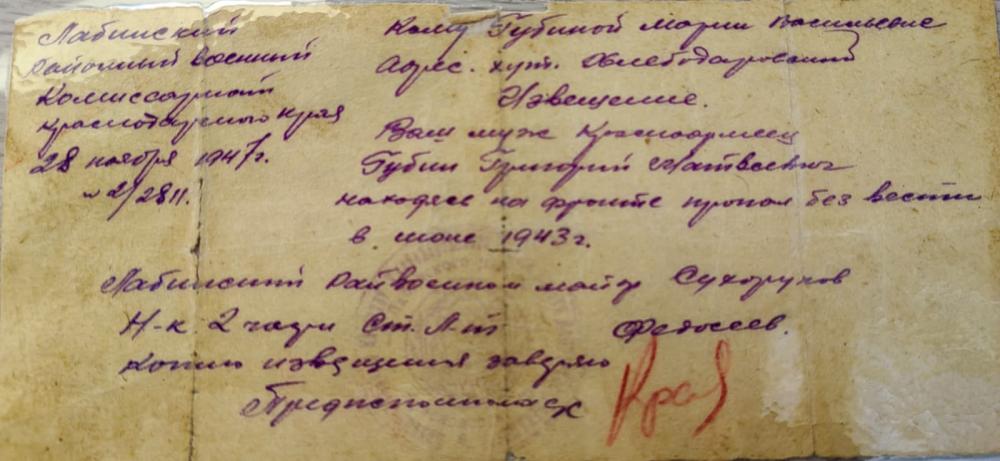 Лабинский
районный военный
Комиссариат
Краснодарского края
28 ноября 1947г.
№ 2/2811.
Кому Губиной Марии Васильевне
Адрес. хут. Хлебодаровский
Извещение.
Ваш муж Красноармеец
Губин Григорий Матвеевич
находясь на фронте пропал без вести
в июне 1943г.
Лабинский Райвоенком майор Сухоруков
Н-к 2 части Ст. Л-т Федосеев.
Копию извещения заверяю